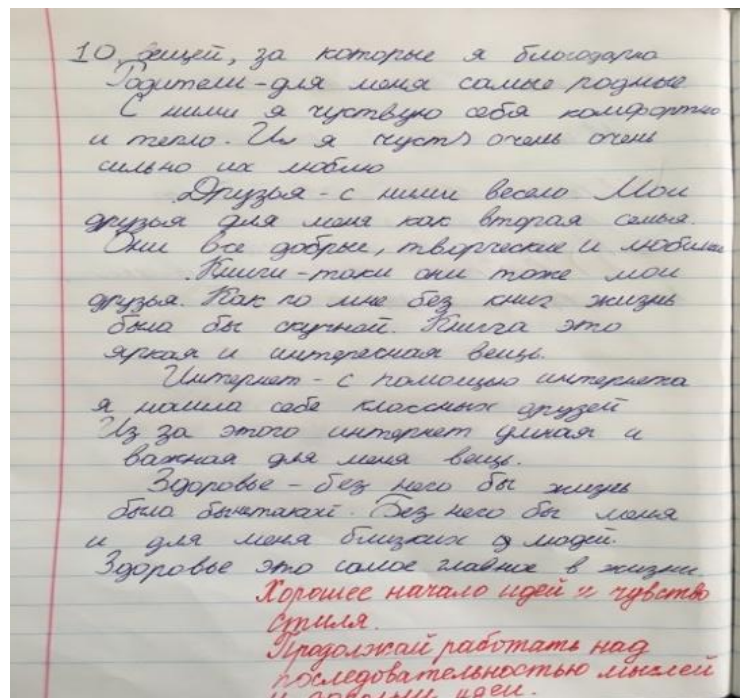 10 вещей, за которые я благодарна
Родители - для меня самые родные
С ними я чуствую себя комфортно
и тепло. И я очень очень
сильно их люблю
Друзья - с ними весело. Мои
друзья для меня как вторая семья.
Они все добрые, творческие и любимые
Книги - таки они тоже мои
друзья. Как по мне без книг жизнь
была бы скучной. Книга это
яркая и интересная вещь.
Интернет - с помощью интернета
я нашла себе классных друзей
Из за этого интернет умная и
важная для меня вещь.
Здоровье - без него бы жизнь
была бы. Без него бы меня
и для меня близких людей.
Здоровье это самое главное в жизни.
Хорошее начало идей и чувство
стиля.
Продолжай работать над
последовательностью мыслей
и идеи.